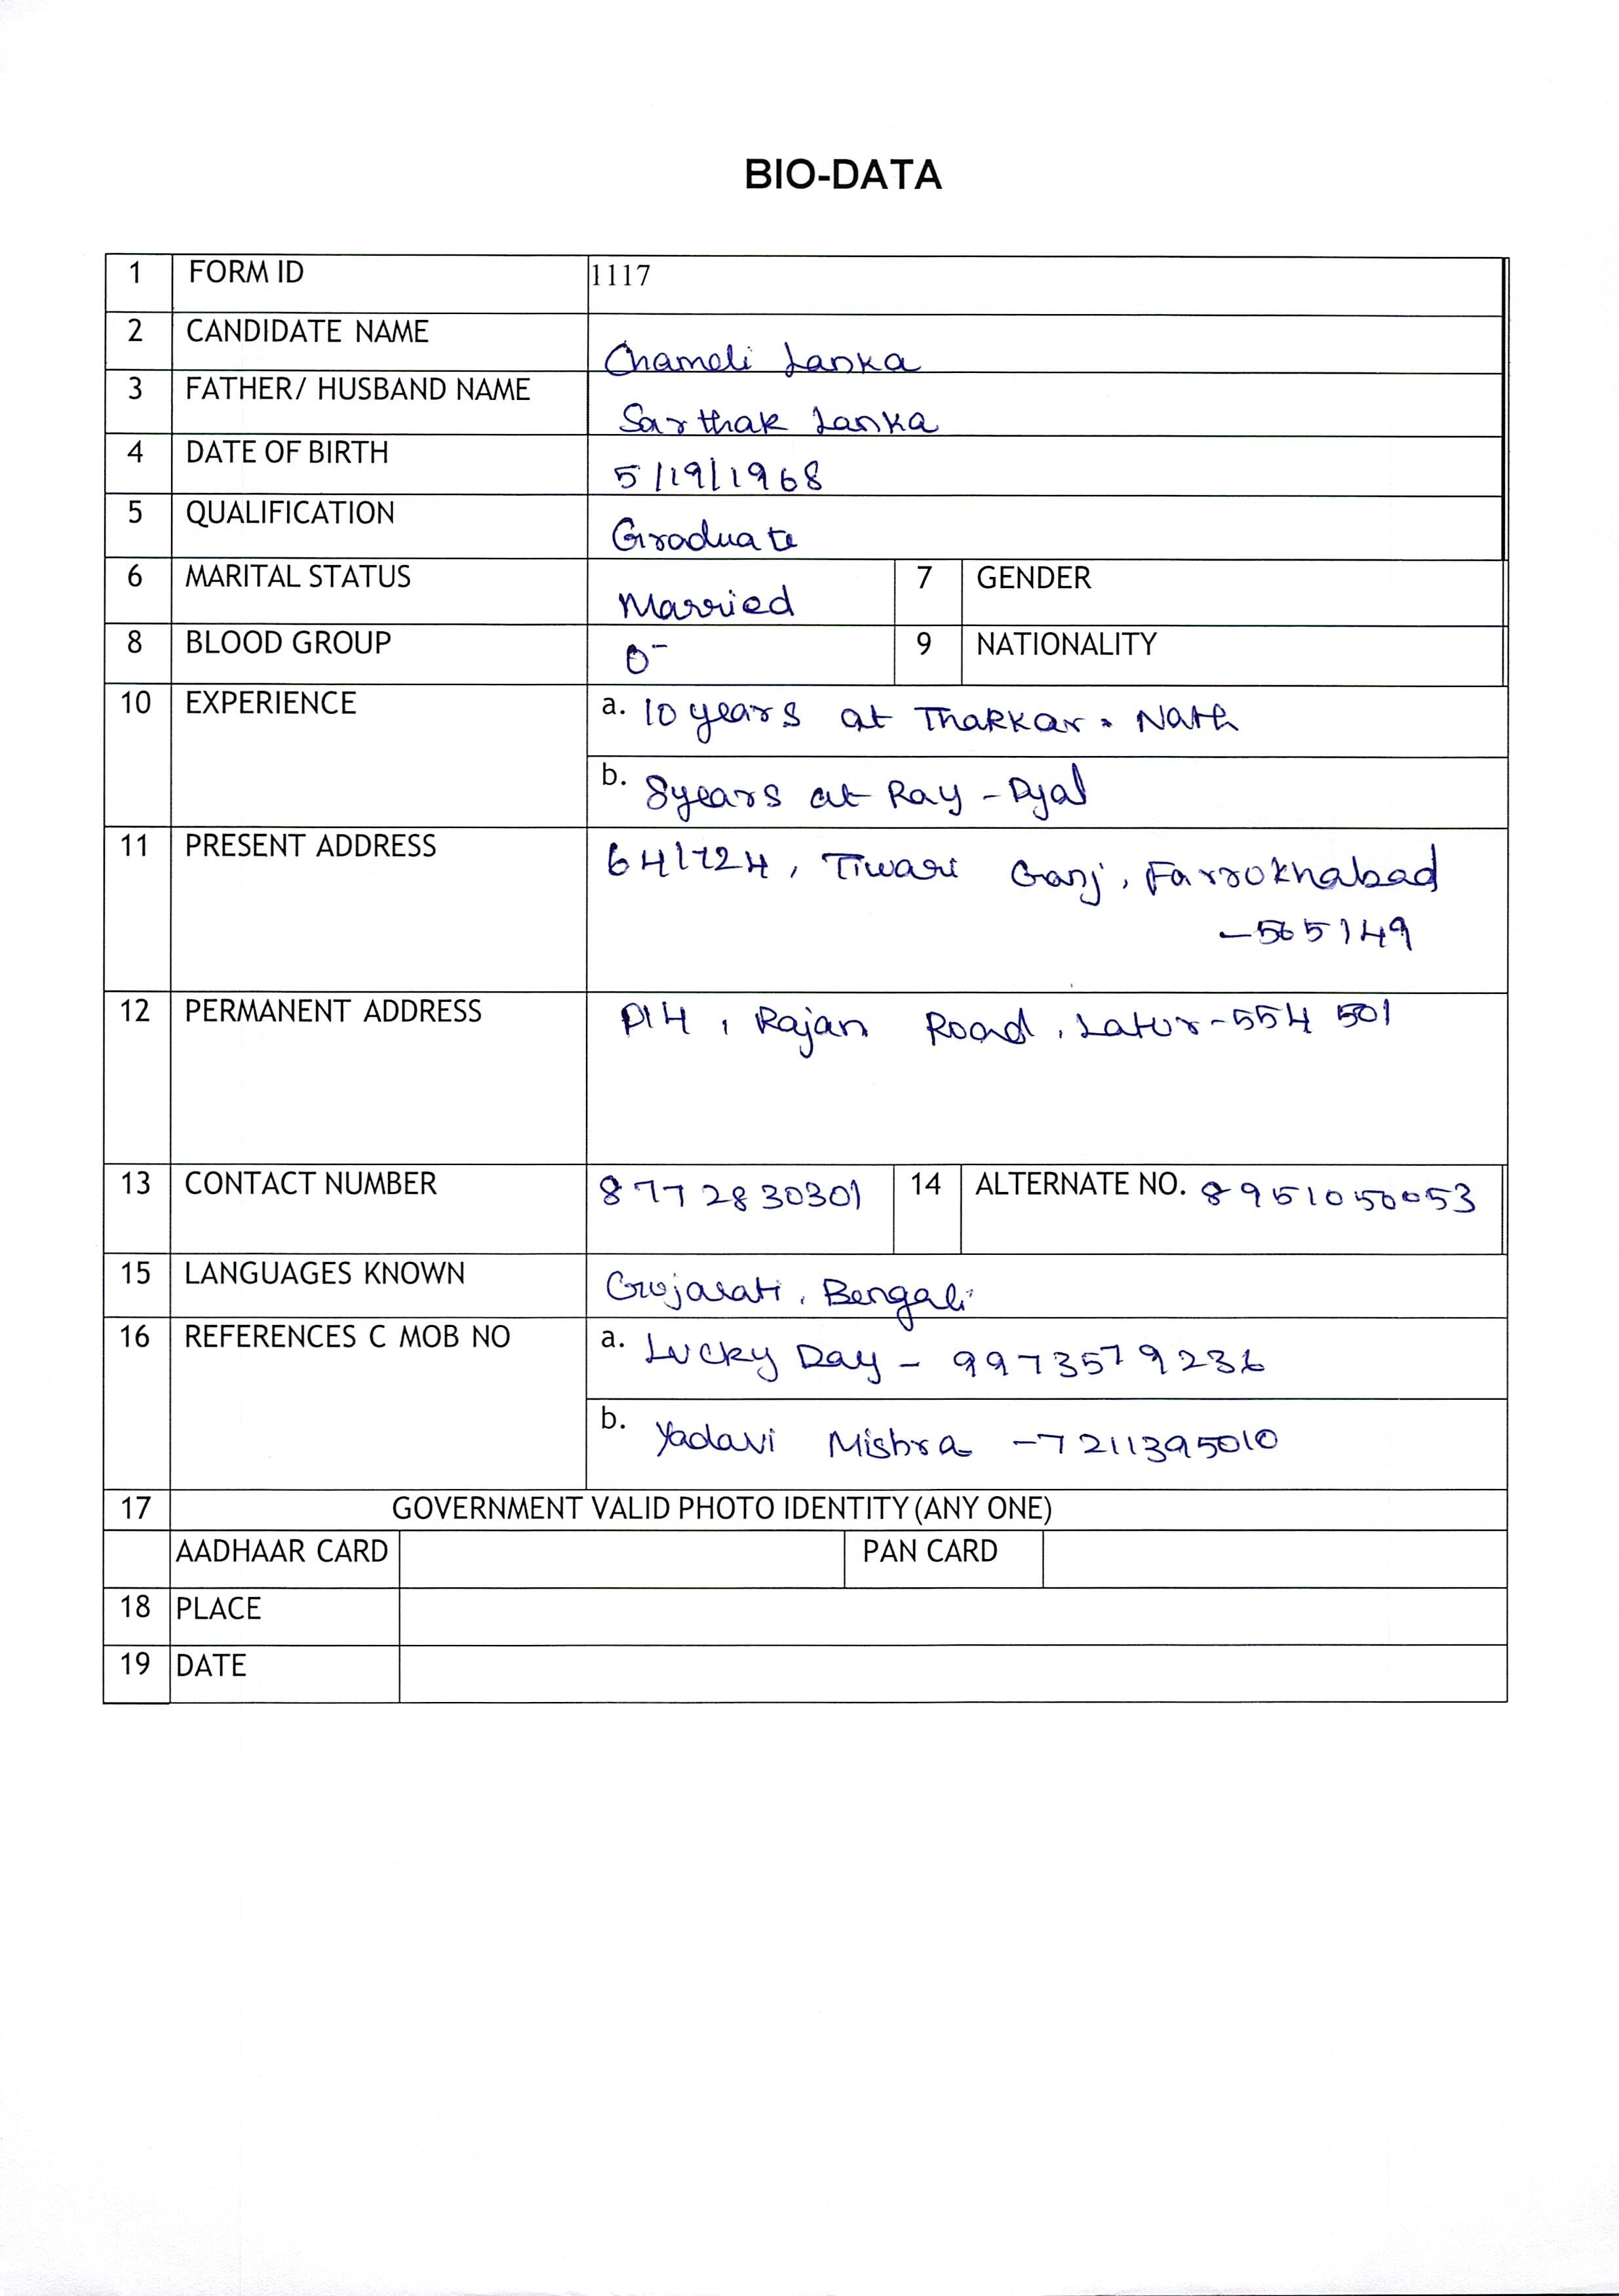 BIO-DATA
1 FORM ID 1117
2 CANDIDATE NAME Chameli Lanka
3 FATHER/ HUSBAND NAME Sarthak Lanka
4 DATE OF BIRTH 5/19/1968
5 QUALIFICATION Graduate
6 MARITAL STATUS Married 7 GENDER
8 BLOOD GROUP O- 9 NATIONALITY
10 EXPERIENCE a. 10 years at Thakkar - Nath
b. 8 years at Ray - Dyal
11 PRESENT ADDRESS 641724, Tiwari Ganj, Farrukhabad
- 565149
12 PERMANENT ADDRESS D14, Rajan Road, Latur - 554 501
13 CONTACT NUMBER 8772830301 14 ALTERNATE NO. 8951050053
15 LANGUAGES KNOWN Gujarati, Bengali
16 REFERENCES C MOB NO a. Lucky Day - 9973579236
b. Yadavi Mishra - 7211395010
17 GOVERNMENT VALID PHOTO IDENTITY (ANY ONE)
AADHAAR CARD PAN CARD
18 PLACE
19 DATE